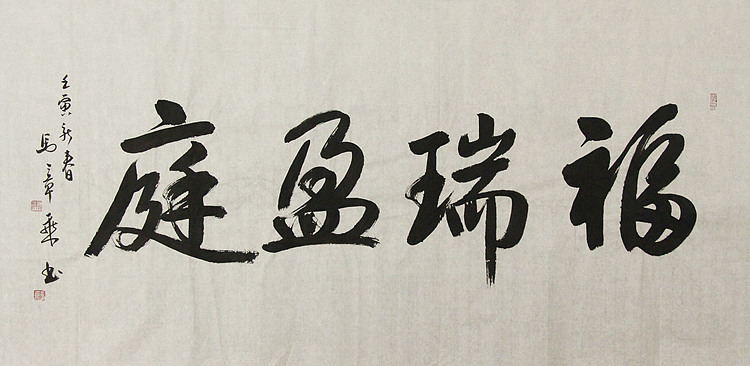 福瑞盈庭
壬寅新春
馬章乘书